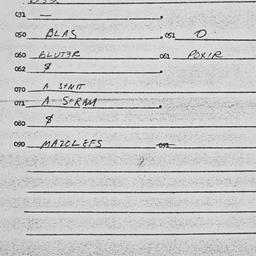 031 —
050 BLAS 051 O
060 ELUT3R 061 POXIR
062 $
070 A S+NIT
071 A S+RAM
080 $
090 MAZCLEFS 091